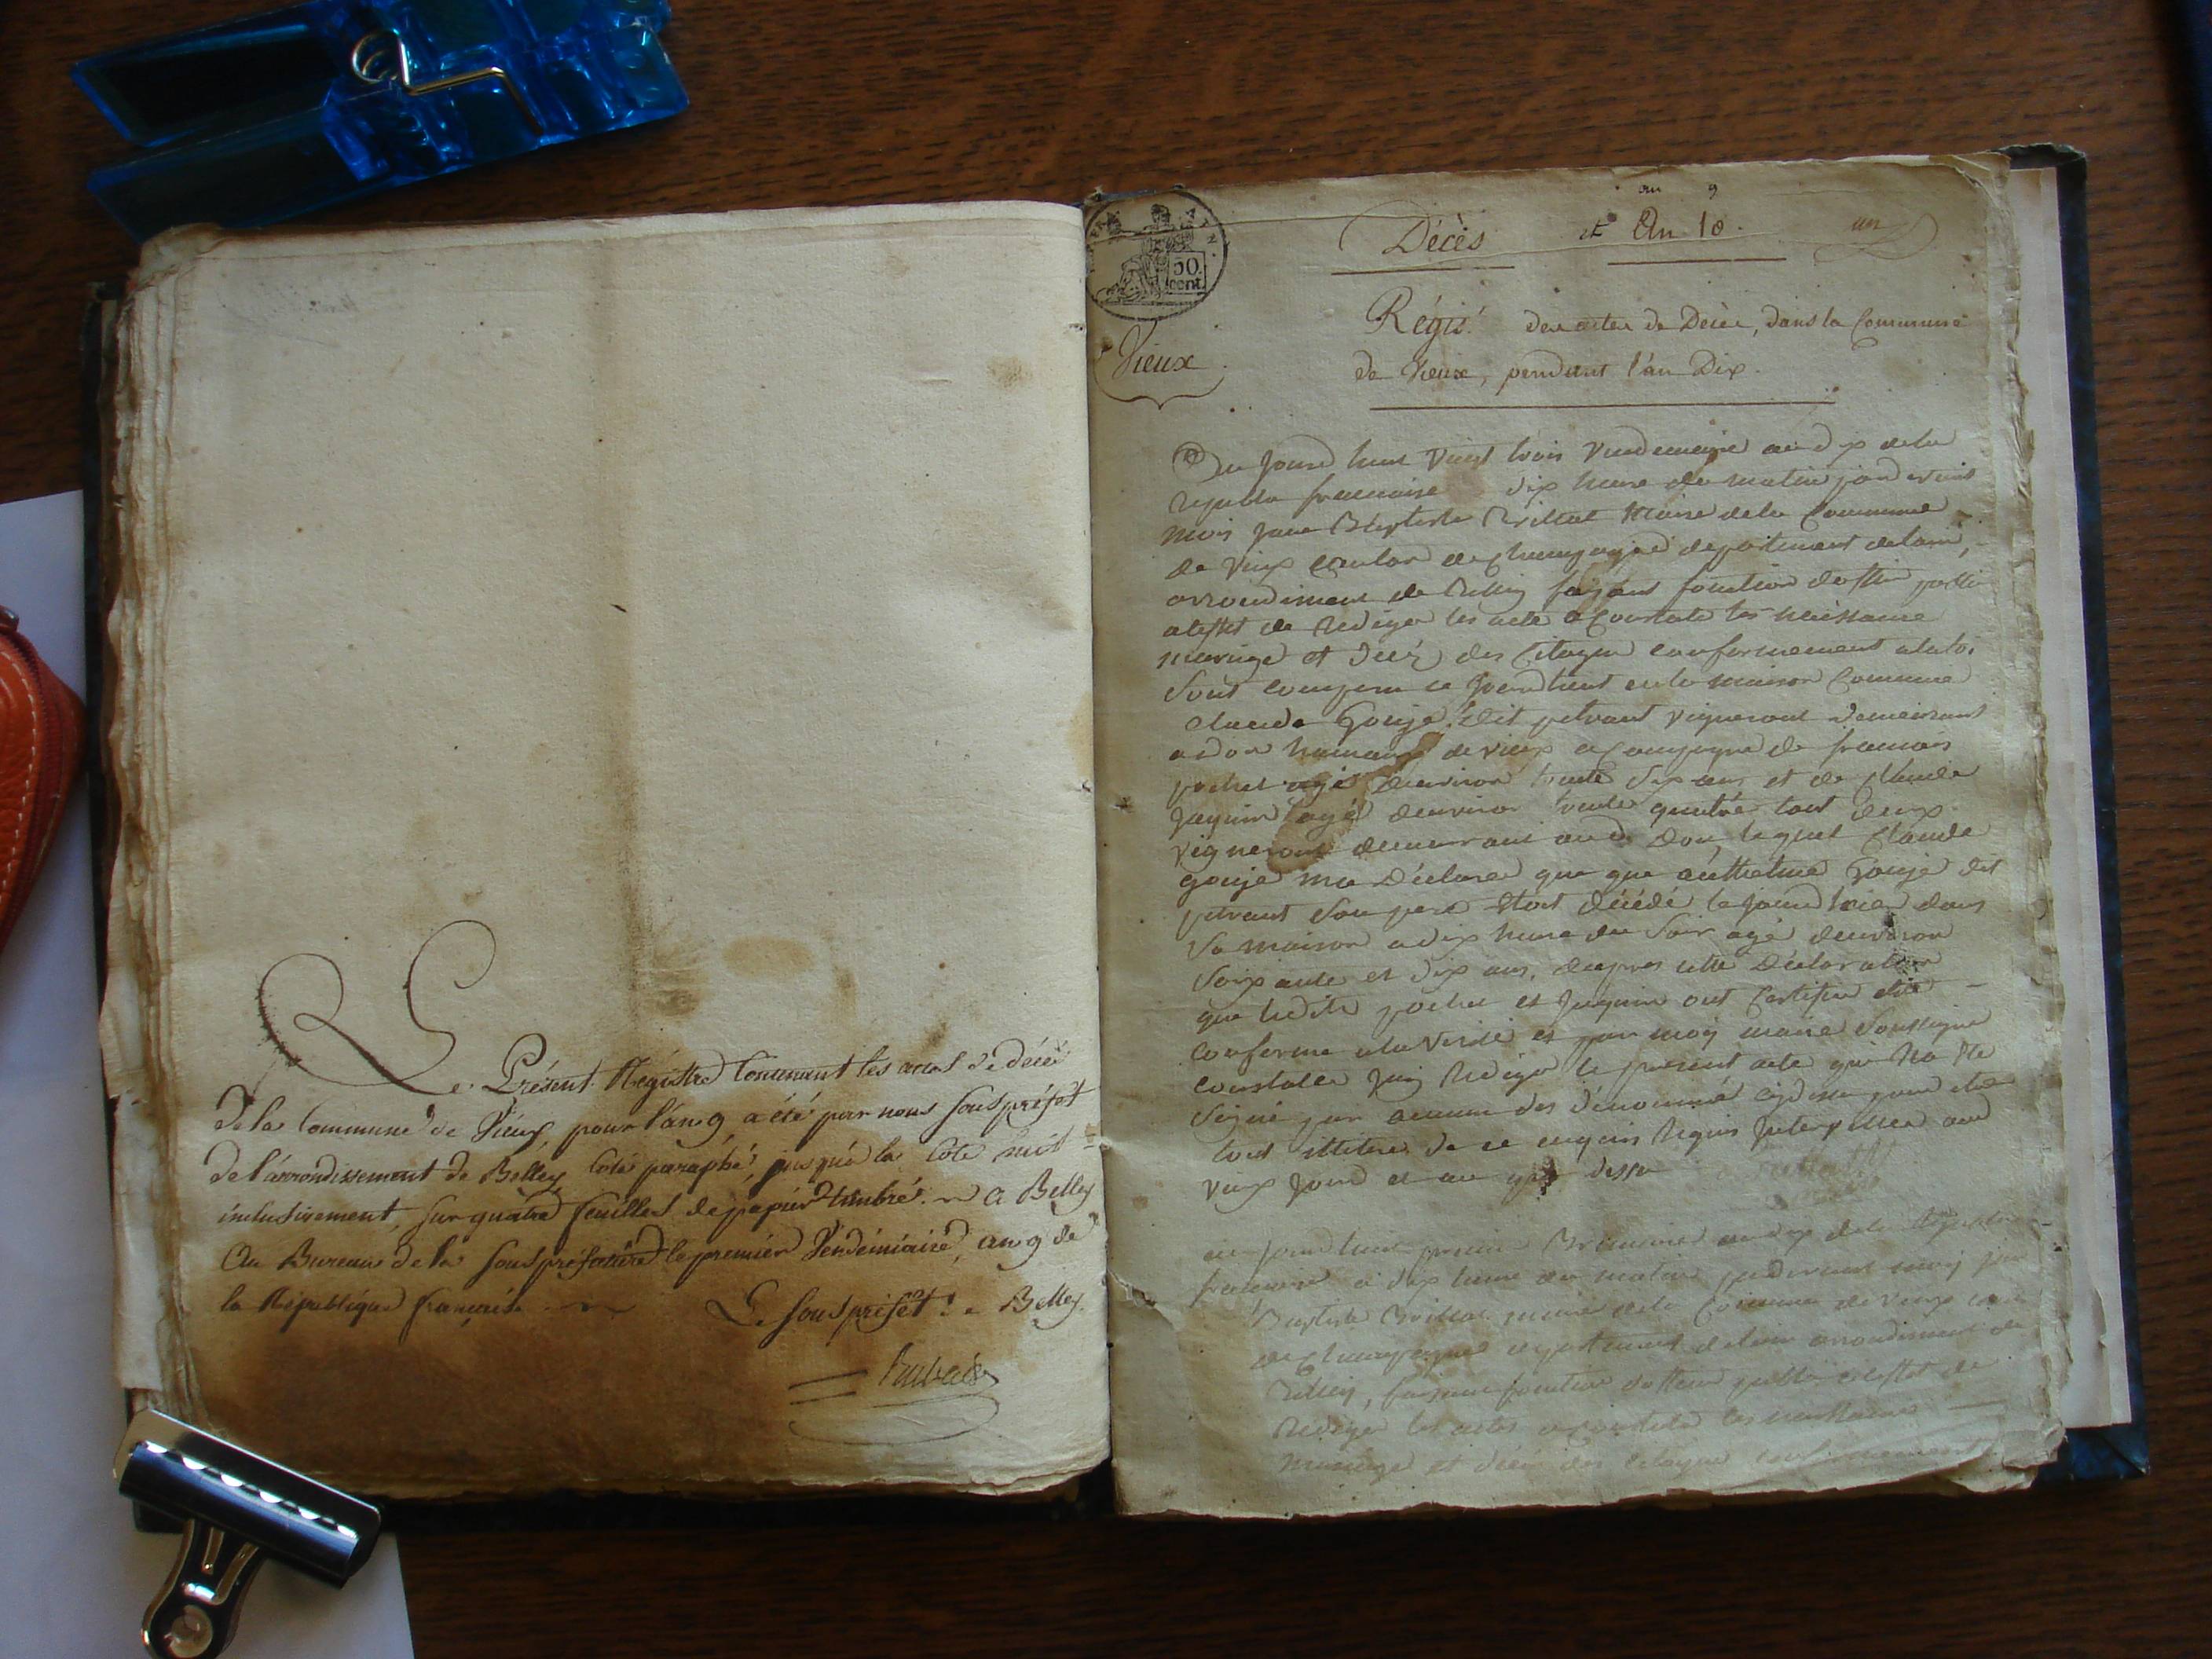 Le Présent Régistre Contenant les actes de décès
de la Commune de Vieux, pour l'an 9 a été par nous Sous préfet
de l'arrondissement de Belley Coté paraphé, jusqué la Cote huit
inclusivement, sur quatre feuilles de papier timbré. a Belley
Au Bureau de la sous préfecture le premier Vendémiaire, an 9 de
la République française
Le sous préfèt de Belley.
an 9
Décès et An 10. un
50
cent.
Vieux
Régis. des actes de Décès, dans la Commune
de Vieux, pendant l'an Dix.
Du Jourd huit Vingt trois Vendemiaire an dix de la
republi francaise dix heure du matin pard evant
mois Jean Baptiste Brillat Maire de la Commune
de Vieux Canton de Champagne departement delain,
arrondiment de Belley faisant fonction doffici publi
aleffet de Rediger les acte a Constate les naissance
mariage et décé des Citoyen conformement alaloi
Sont comparu ce Jourdhuit en la maison Commune
Claude Goujé dit petvant vigneront demeurant
a don hameau de vieux acompagne de francois
pochet agé denviron trente six ans et de Claude
Juquin agé denviron trente quatre tout deux
vigneront demeurant aud. Don, lequel Claude
goujé ma Déclaré que que anthelme Goujé dit
petvant son pere étoit décédé le jourd hier dans
Sa maison a dix heure du soir agé denviron
soixante et dix ans, daupres cette Déclaration
que lesdits pochet et Juquin ont Certifié etre
conforme ala Verité et par moy maire Soussigné
constatée Jay Rediger le present acte qui na été
Signé par aucun des dénommé cydessu pour etre
tout illitere de ce enquis Requis Interpellée aud
vieux Jourd et an que dessu
au jourdhuit premier Brumaire an dix de la Republi
francaise a dix heure du matin pardevant moy jean
Baptiste Brillat maire de la Commune de vieux canton
de Champagne departement delain arrondiment de
Belley, faisant fonction dofficier publi aleffet de
Rediger les actes a Constate les naissance
mariage et décés des Citoyen conformement